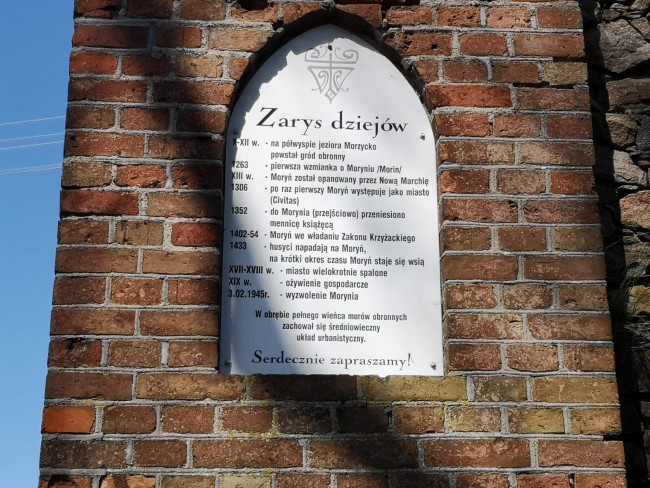 Zarys dziejów
X-XII w. - na półwyspie jeziora Morzycko
powstał gród obronny
1263 - pierwsza wzmianka o Moryniu /Morin/
XIII w. - Moryń został opanowany przez Nową Marchię
1306 - po raz pierwszy Moryń występuje jako miasto
(Civitas)
1352 - do Morynia (przejściowo) przeniesiono
mennicę książęcą
1402-54 - Moryń we władaniu Zakonu Krzyżackiego
1433 - husyci napadają na Moryń,
na krótki okres czasu Moryń staje się wsią
XVII-XVIII w. - miasto wielokrotnie spalone
XIX w. - ożywienie gospodarcze
3.02.1945r. - wyzwolenie Morynia
W obrębie pełnego wieńca murów obronnych
zachował się średniowieczny
układ urbanistyczny.
Serdecznie zapraszamy!